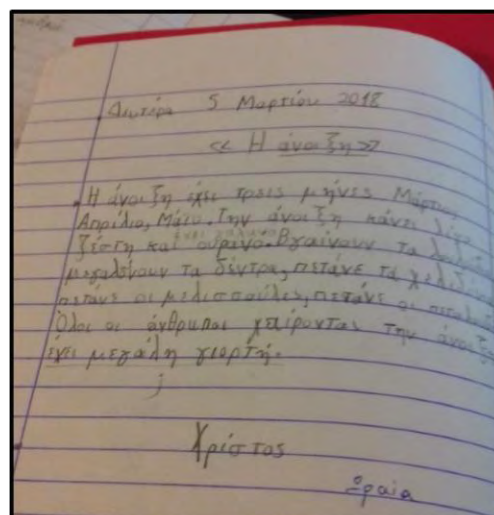 Δευτέρα 5 Μαρτίου 2018
<< Η άνοιξη >>
Η άνοιξη έχει τρεις μήνες Μάρτιο,
Απρίλιο, Μάιο. Την άνοιξη κάνει λίγο
έχει γαλανό
ζέστη και ουρανό. Βγαίνουν τα
μεγαλώνουν τα δέντρα, πετάνε τα χελιδόνια
πετάνε οι μελισσούλες, πετάνε οι
Όλοι οι άνθρωποι χαίροντας την άνοιξη
έχει μεγάλη γιορτή.
Χρίστος
Ωραία